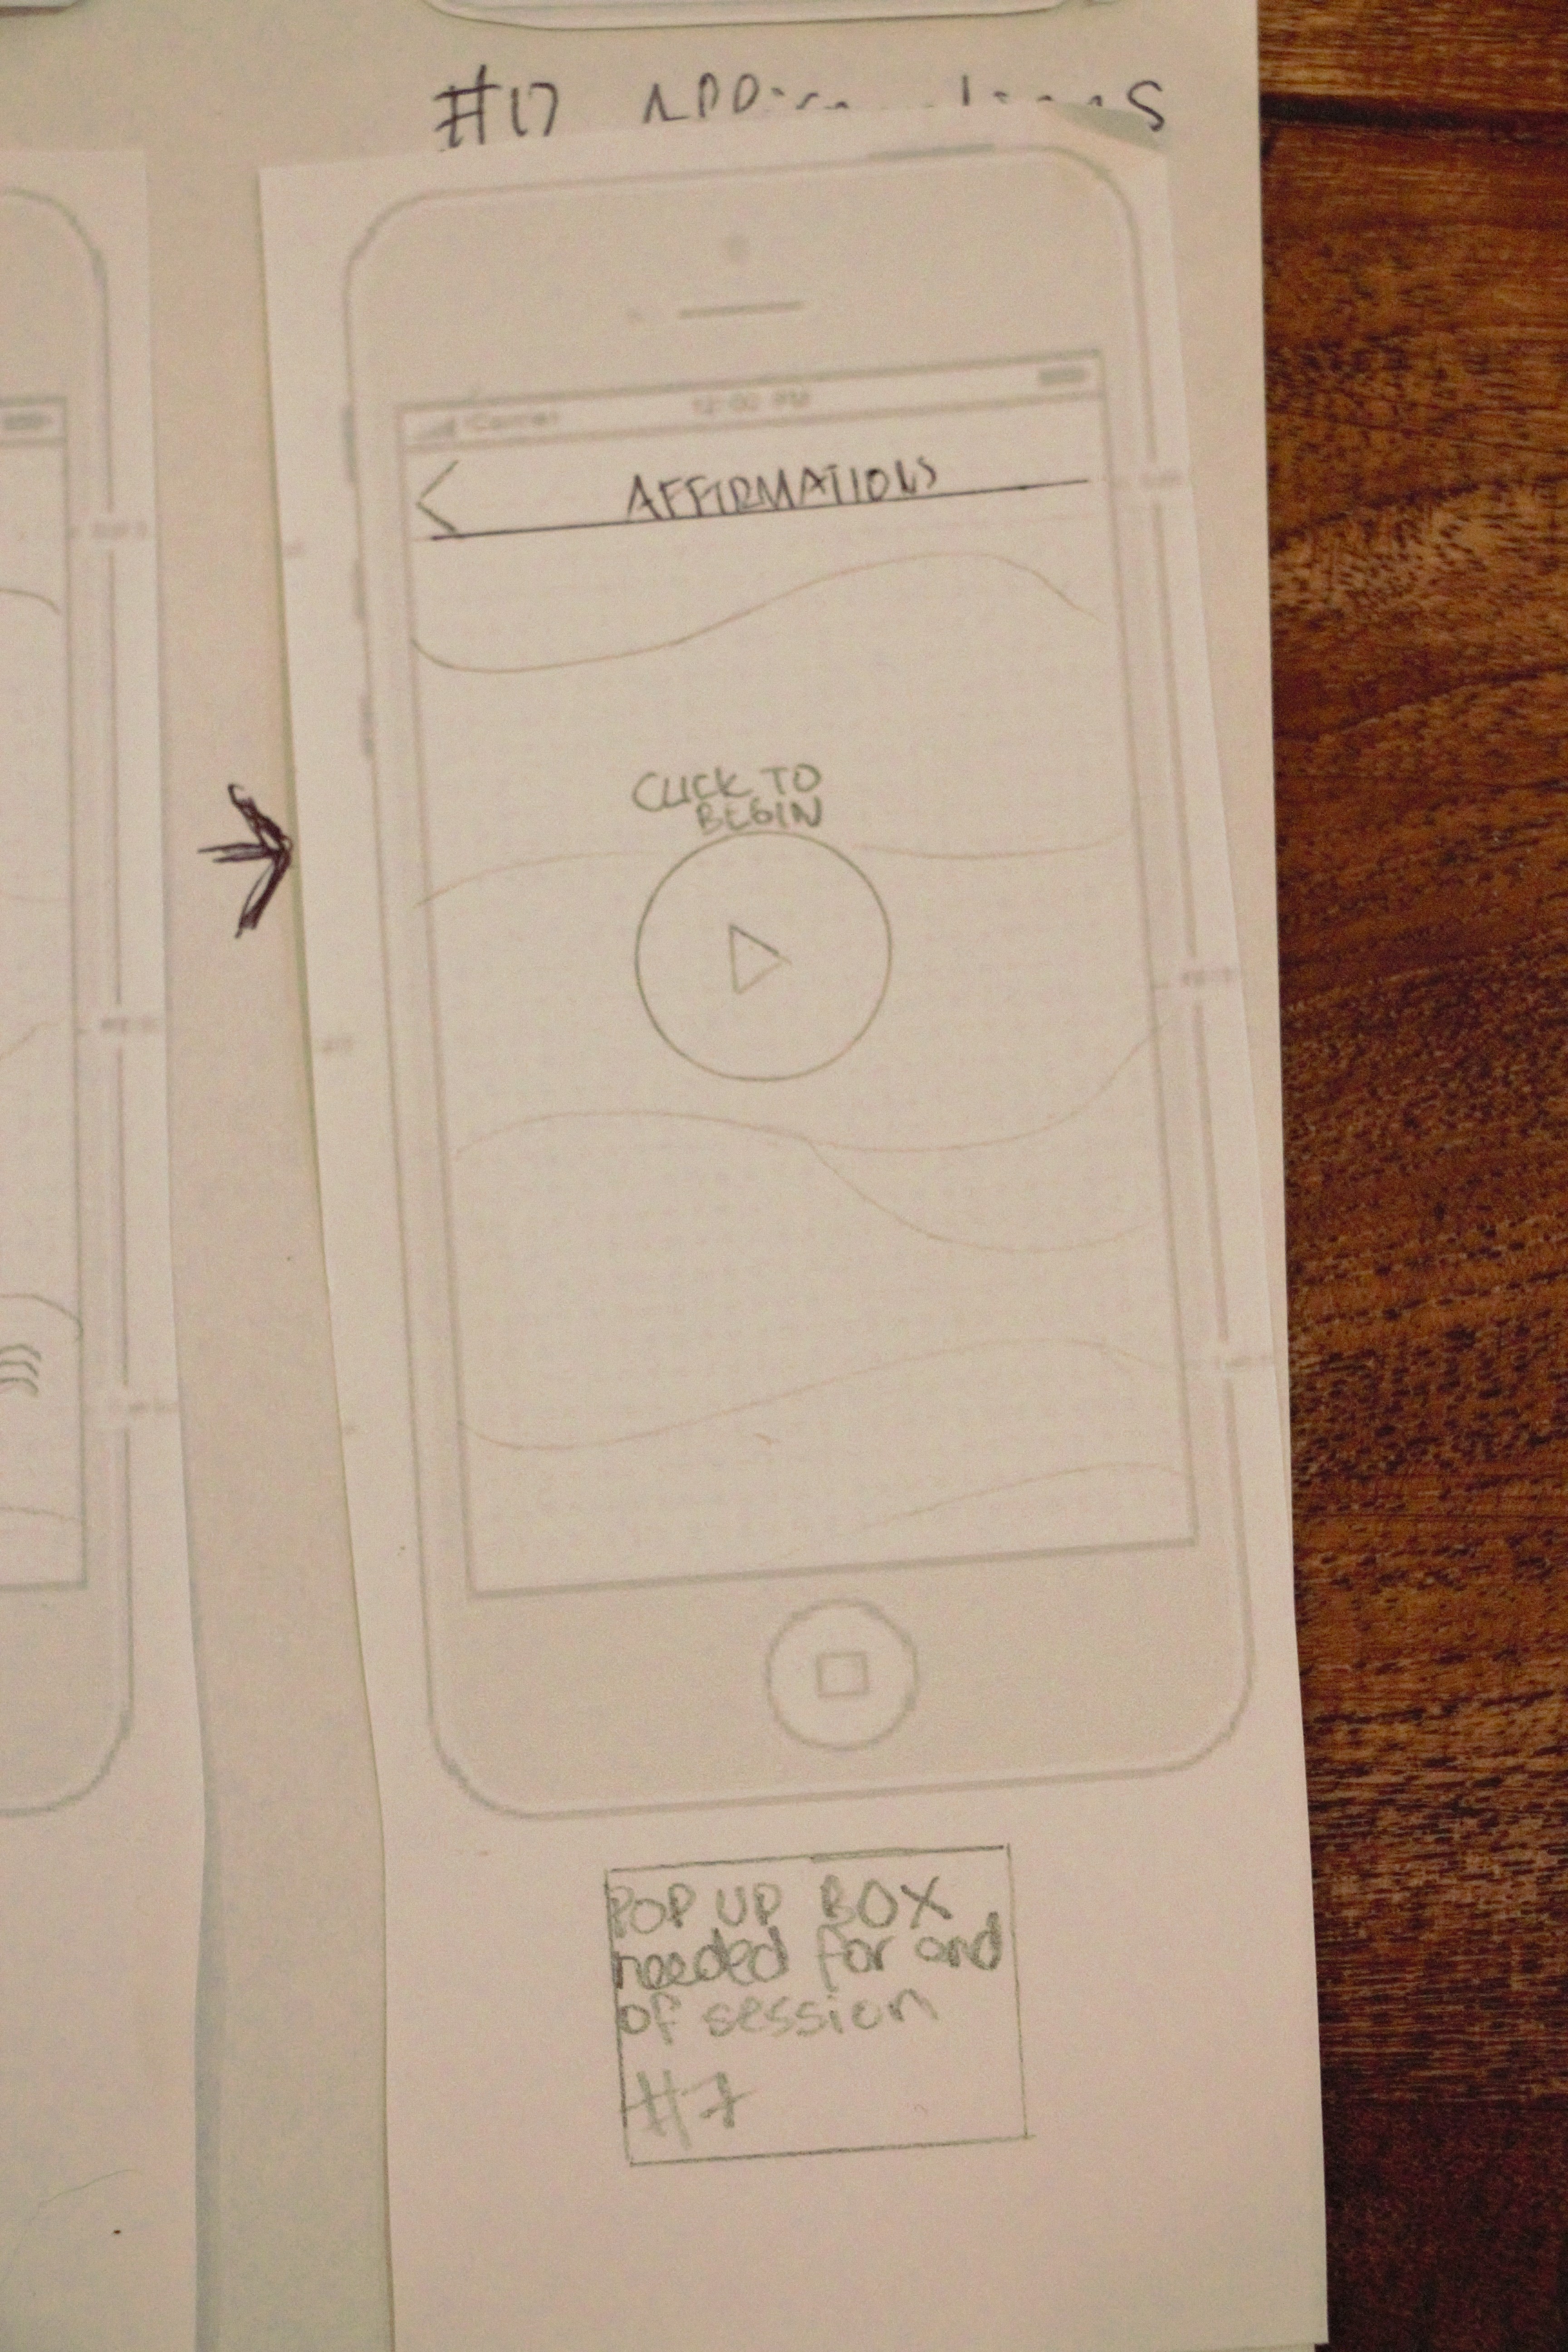 #17
Carrier 12:00 PM
AFFIRMATIONS
CLICK TO
BEGIN
POP UP BOX
needed for end
of session
#7